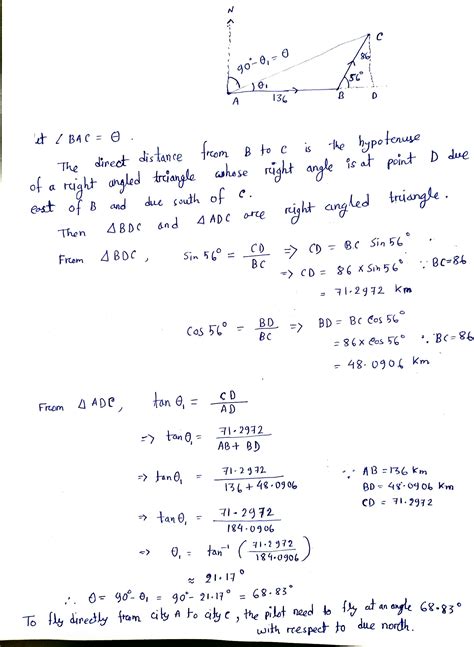 N
C
90°-θ₁ = θ
86
θ₁
56°
A
136
B
D
let ∠BAC = θ.
The direct distance from B to C is the hypotenuse
of a right angled triangle whose right angle is at point D due
east of B and due south of C.
Then ΔBDC and ΔADC are right angled triangle.
From ΔBDC, sin 56° = CD/BC ⇒ CD = BC sin 56°
⇒ CD = 86 × sin 56° ∵ BC=86
= 71.2972 km
cos 56° = BD/BC ⇒ BD = BC cos 56°
= 86 × cos 56° ∵ BC=86
= 48.0906 km
From ΔADC, tan θ₁ = CD/AD
⇒ tan θ₁ = 71.2972/AB + BD
⇒ tan θ₁ = 71.2972/136 + 48.0906 ∵ AB = 136 km
BD = 48.0906 km
CD = 71.2972
⇒ tan θ₁ = 71.2972/184.0906
⇒ θ₁ = tan⁻¹ (71.2972/184.0906)
≈ 21.17°
∴ θ = 90°-θ₁ = 90°-21.17° = 68.83°
To fly directly from city A to city C, the pilot need to fly at an angle 68.83°
with respect to due north.